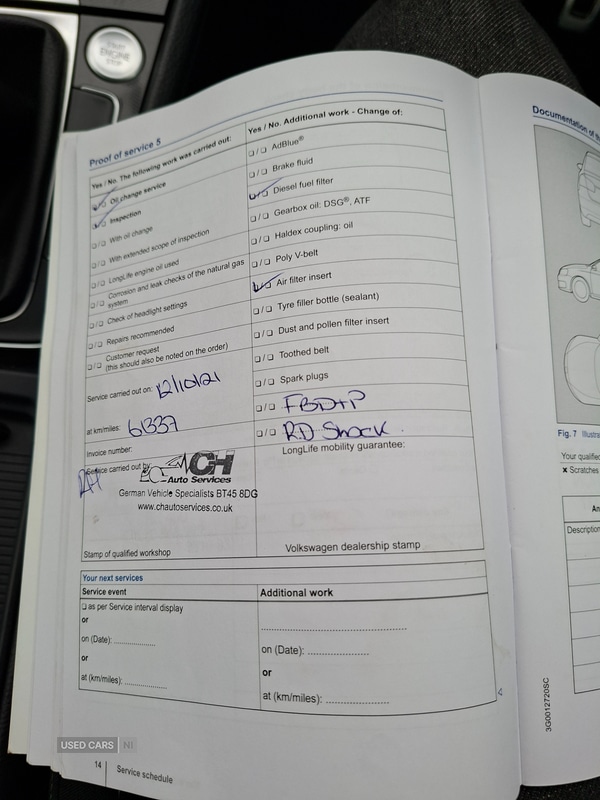 START
ENGINE
STOP
Proof of service 5
Yes / No. The following work was carried out:
❏/❏ Oil change service
❏/❏ Inspection
❏/❏ With oil change
❏/❏ With extended scope of inspection
❏/❏ LongLife engine oil used
❏/❏ Corrosion and leak checks of the natural gas system
❏/❏ Check of headlight settings
❏/❏ Repairs recommended
❏/❏ Customer request
(this should also be noted on the order)
Service carried out on: 12/10/21
at km/miles: 61337
Invoice number:
Service carried out by:
CH
Auto Services
German Vehicle Specialists BT45 8DG
www.chautoservices.co.uk
Stamp of qualified workshop
Yes / No. Additional work - Change of:
❏/❏ AdBlue®
❏/❏ Brake fluid
❏/❏ Diesel fuel filter
❏/❏ Gearbox oil: DSG®, ATF
❏/❏ Haldex coupling: oil
❏/❏ Poly V-belt
❏/❏ Air filter insert
❏/❏ Tyre filler bottle (sealant)
❏/❏ Dust and pollen filter insert
❏/❏ Toothed belt
❏/❏ Spark plugs
❏/❏ FBD+P
❏/❏ RD Shock
LongLife mobility guarantee:
Volkswagen dealership stamp
Your next services
Service event
❏ as per Service interval display
or
on (Date): ................
or
at (km/miles): ................
Additional work
on (Date): ................
or
at (km/miles): ................
14
Service schedule
USED CARS NI
Documentation of th
Fig. 7 Illustra
Your qualified
✘ Scratches
An
Description
3G0012720SC